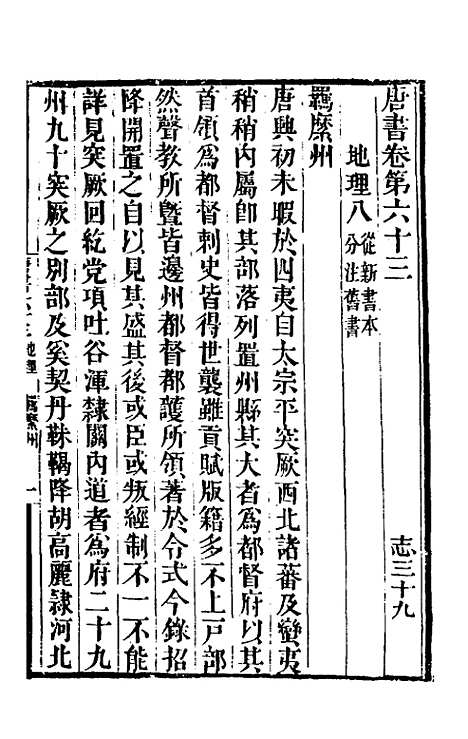 唐書卷第六十三
志三十九
地理八從新書本
分注舊書
羈縻州
唐興初未暇於四夷自太宗平突厥西北諸蕃及蠻夷
稍稍內屬卽其部落列置州縣其大者爲都督府以其
首領爲都督刺史皆得世襲雖貢賦版籍多不上戸部
然聲教所曁皆邊州都督都護所領著於令式今錄招
降開置之自以見其盛其後或臣或叛經制不一不能
詳見突厥回紇党項吐谷渾隸關內道者爲府二十九
州九十突厥之別部及奚契丹靺鞨降胡高麗隷河北
地理
羈縻州
一